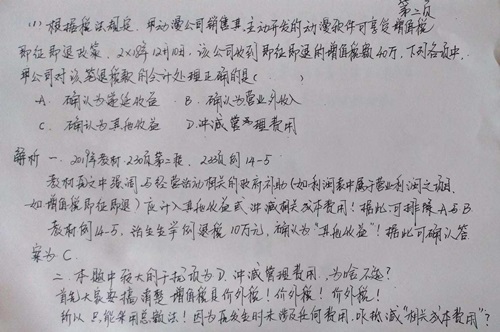 第二页
(1) 根据税法规定, 甲动漫公司销售其主动开发的动漫软件可享受增值税
即征即退政策. 2×18年12月10日, 该公司收到即征即退的增值税款40万, 下列各项中,
甲公司对该笔退税款的会计处理正确的是( )
A. 确认为递延收益 B. 确认为营业外收入
C. 确认为其他收益 D. 冲减管理费用
解析 一. 2019年教材 230页第二段, 233页例14-5
教材原文中强调与经营活动相关的政府补助(如利润表中属于营业利润之项目,
如增值税即征即退)应计入其他收益或冲减相关成本费用! 据此可排除A与B
教材例14-5, 活生生举例退税10万元, 确认为"其他收益"! 据此可确认答
案为C.
二. 本题中存在的干扰项为D. 冲减管理费用, 为啥不选?
首先大家要搞清楚 增值税是价外税! 价外税! 价外税!
所以只能采用总额法! 因为在发生时未涉及任何费用, 咋抵减"相关成本费用"?